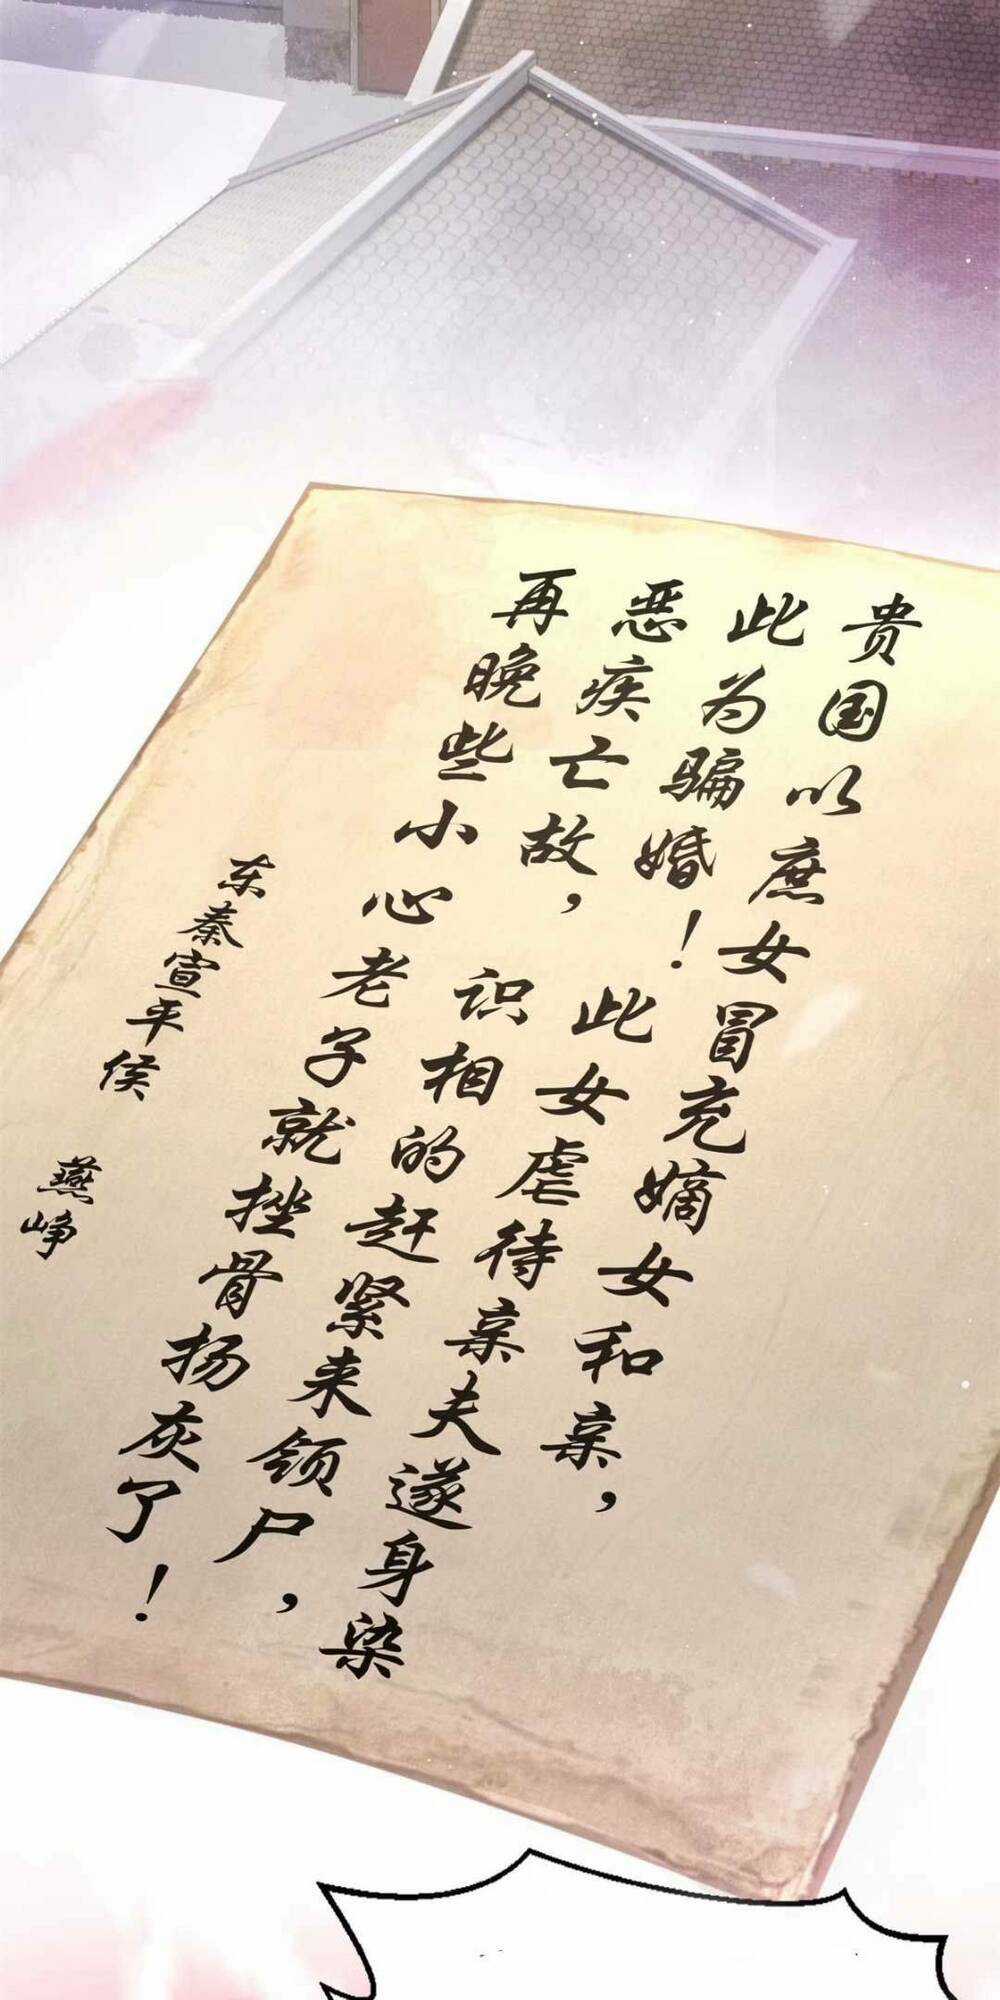 贵国以庶女冒充嫡女和亲，
此为骗婚！此女虐待亲夫遂身染
恶疾亡故，识相的赶紧来领尸，
再晚些小心老子就挫骨扬灰了！
东秦宣平侯 燕峥